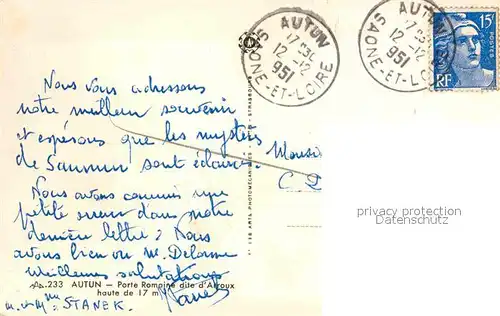 AUTUN
17 H
12 -12
1951
SAONE-ET-LOIRE
AUTUN
17 H
12 -12
1951
SAONE-ET-LOIRE
15F
POSTES
RF
Nous vous adressons
notre meilleur souvenir
et espérons que les mystères
de Saumur sont éclaircis.
Nous avons commis une
petite erreur dans notre
dernière lettre : Nous
avons bien vu M. Delorme
Meilleures salutations
Stanek
M. et Mme STANEK.
Monsi
privacy protection
233 AUTUN — Porte Romaine dite d'Arroux
haute de 17 m
ARTS PHOTOMÉCANIQUES
STRASBOURG